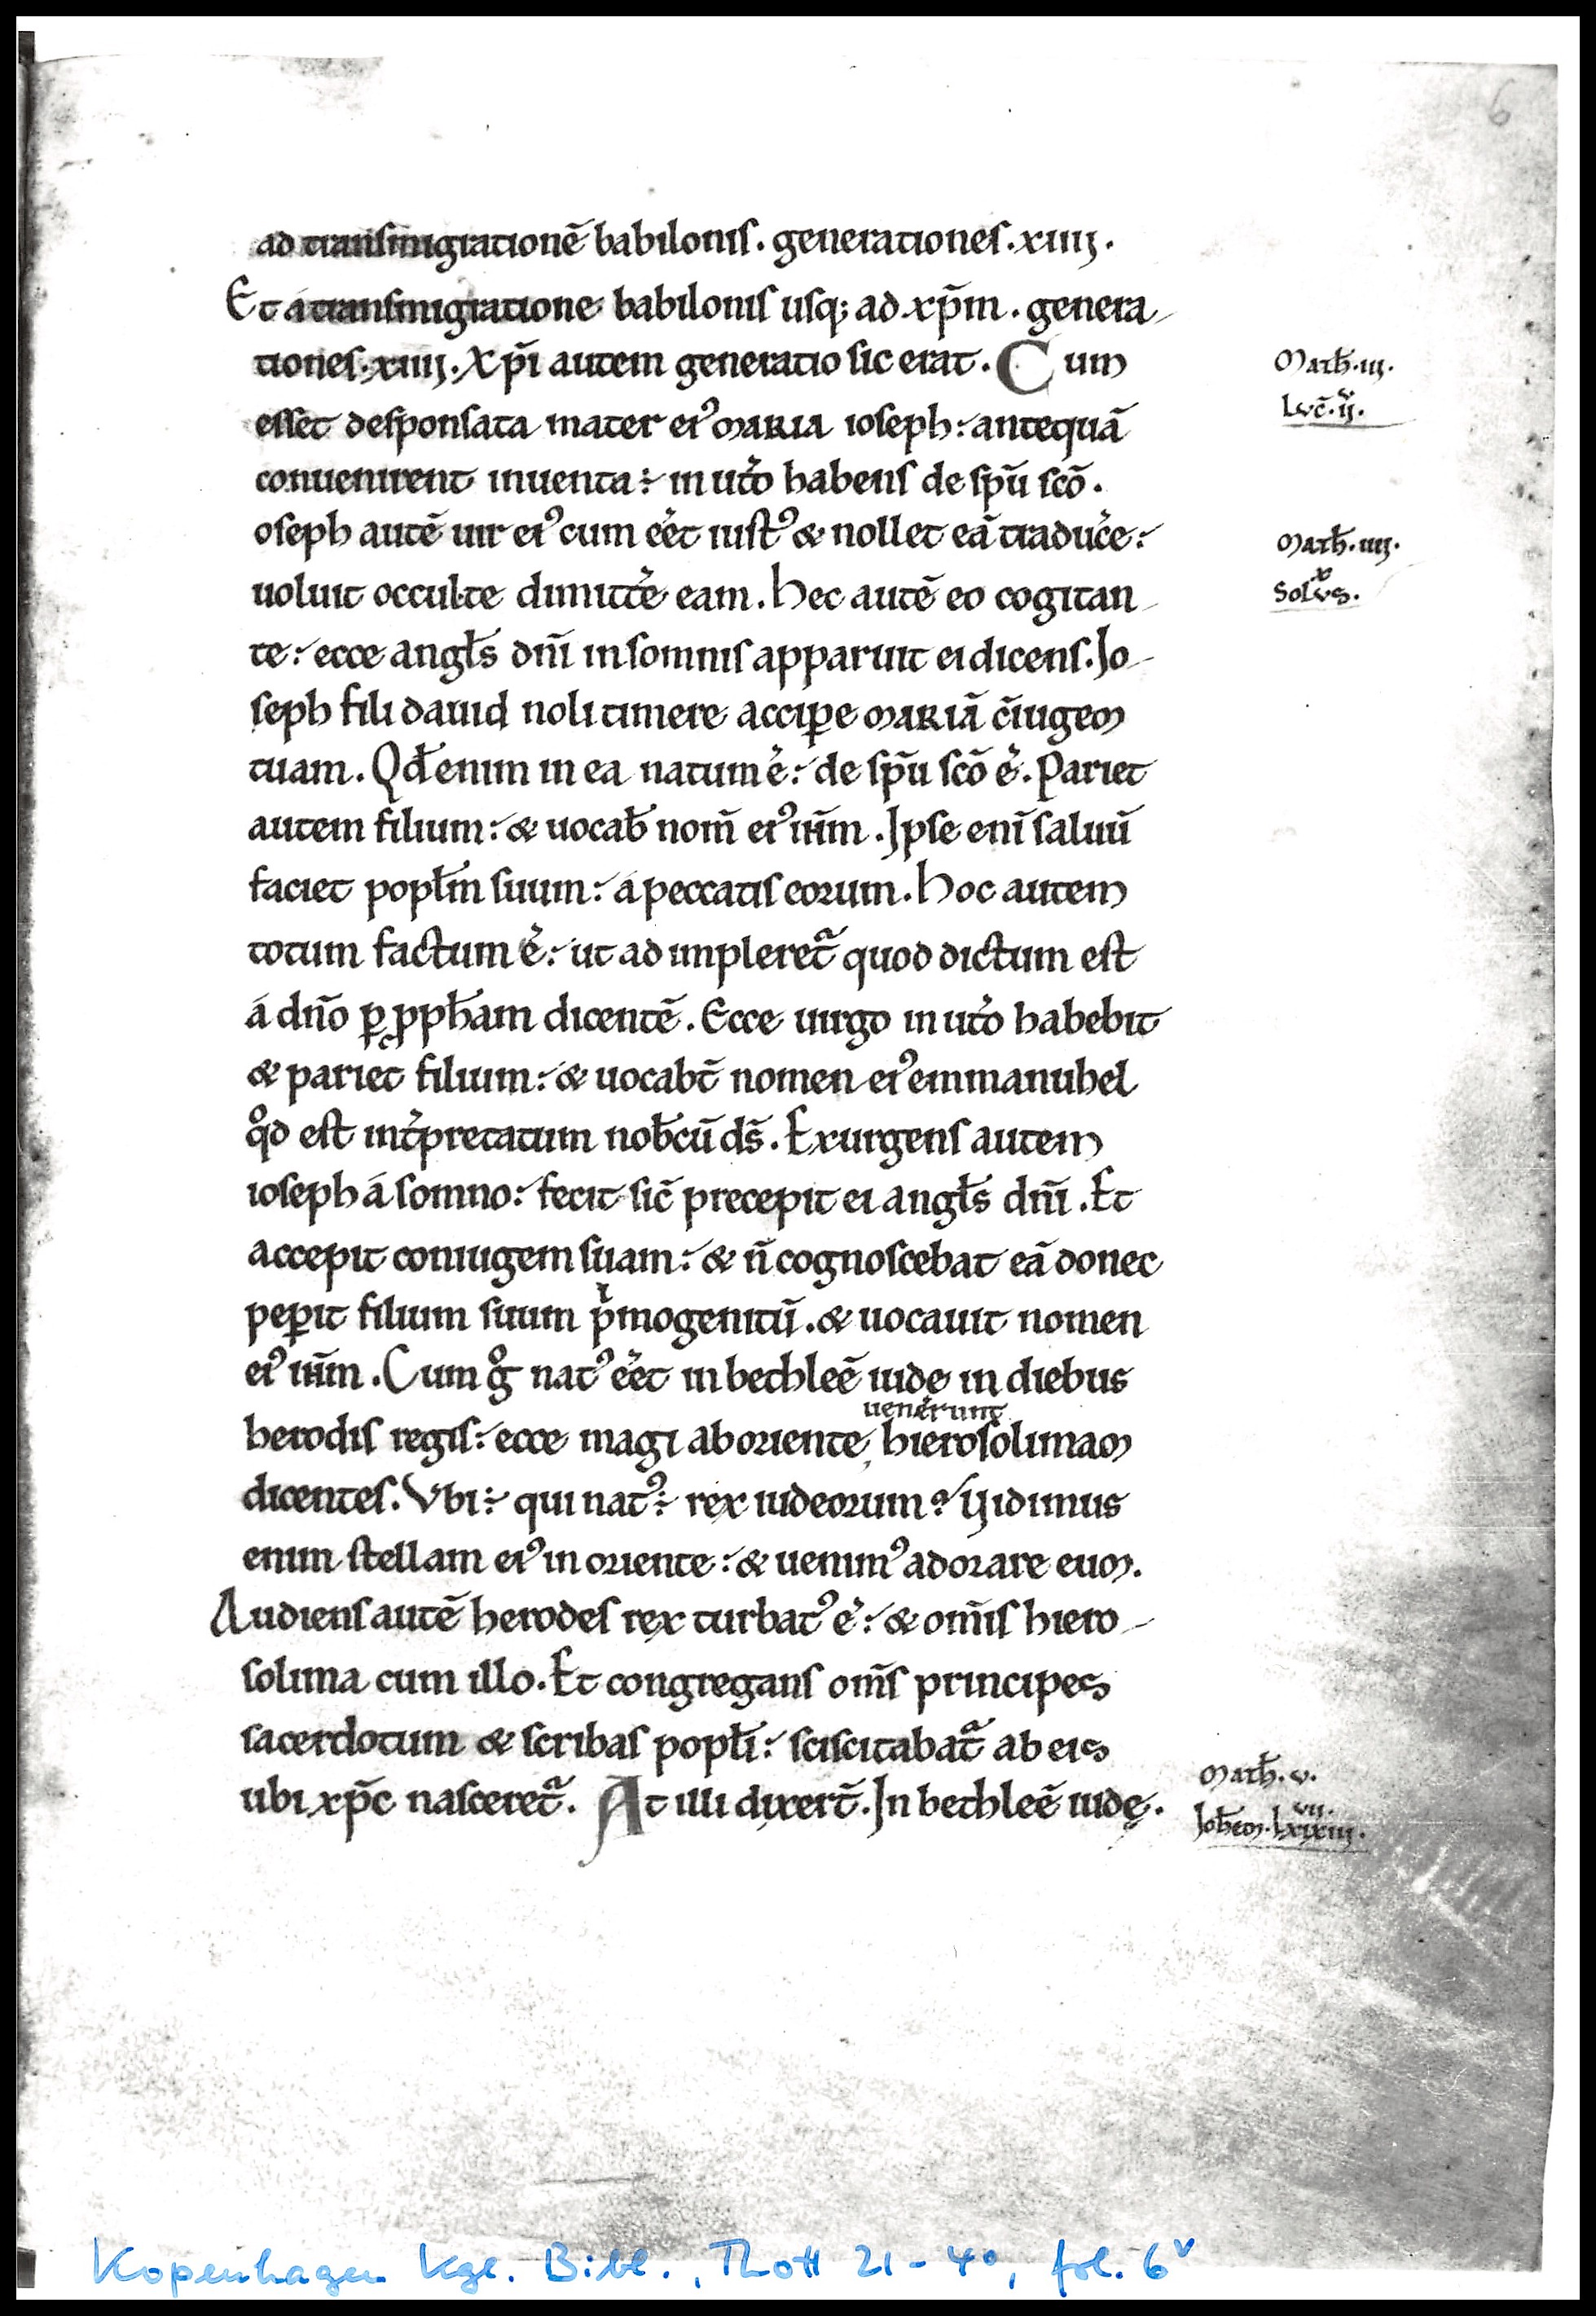 6
ad transmigrationē babilonis. generationes.xiiii.
Et á transmigratione babilonis usq; ad xp̄m. genera-
tiones.xiiii. Xp̄i autem generatio sic erat. Cum
Math̄.iii.
Luc̄.ii.
esset desponsata mater eiꝰ MARIA ioseph: antequā
conuenirent inuenta÷ in ut͛o habens de sp̄u sc̄o.
oseph autē uir eiꝰ cum eēt iustꝰ & nollet eā traduc͛e:
Math̄.iiii.
x
Solus.
uoluit occulte dimitt͛e eam. Hec autē eo cogitan-
te: ecce angl̄s dn̄i in somnis apparuit ei dicens. Jo-
seph fili dauid noli timere accip̱e MARIĀ c̄iugem
tuam. Qd̄ enim in ea natum ē: de sp̄u sc̄o ē. Pariet
autem filium: & uocab̄ nom̄ eiꝰ ih̄m. Ipse eni̅ saluū
faciet popl̄m suum: á peccatis eorum. Hoc autem
totum factum ē: ut ad impleret᷑ quod dictum est
á dn̄o ꝑ ꝓph̄am dicentē. Ecce uirgo in ut͛o habebit
& pariet filium: & uocabt̄ nomen eiꝰ emmanuhel
qͦd est int͛pretatum nob̄cū ds̄. Exurgens autem
ioseph á somno: fecit sic̄ precepit ei angl̄s dn̄i. Et
accepit coniugem suam: & n̄ cognoscebat eā donec
peꝑit filium suum pͥmogenitū. & uocauit nomen
eiꝰ ih̄m. Cum gͦ natꝰ eēt in bethleē iude in diebus
uener̄unt
herodis regis: ecce magi ab oriente, hierosolimam
dicentes. Vbi÷ qui natꝰ÷ rex iudeorum? Vidimus
enim stellam eiꝰ in oriente: & uenimꝰ adorare eum.
Audiens autē herodes rex turbatꝰ ē: & om̄is hiero-
solima cum illo. Et congregans om̄s principes
sacerdotum & scribas popl̄i: sciscitabat᷑ ab eis
ubi xp̄c nasceret᷑. At illi dixert̄. Jn bethleē iudę.
Math̄.v.
vii.
Joh̄em.lxxxiii.
Kopenhagen Kgl. Bibl., Thott 21-4°, fol. 6ᵛ